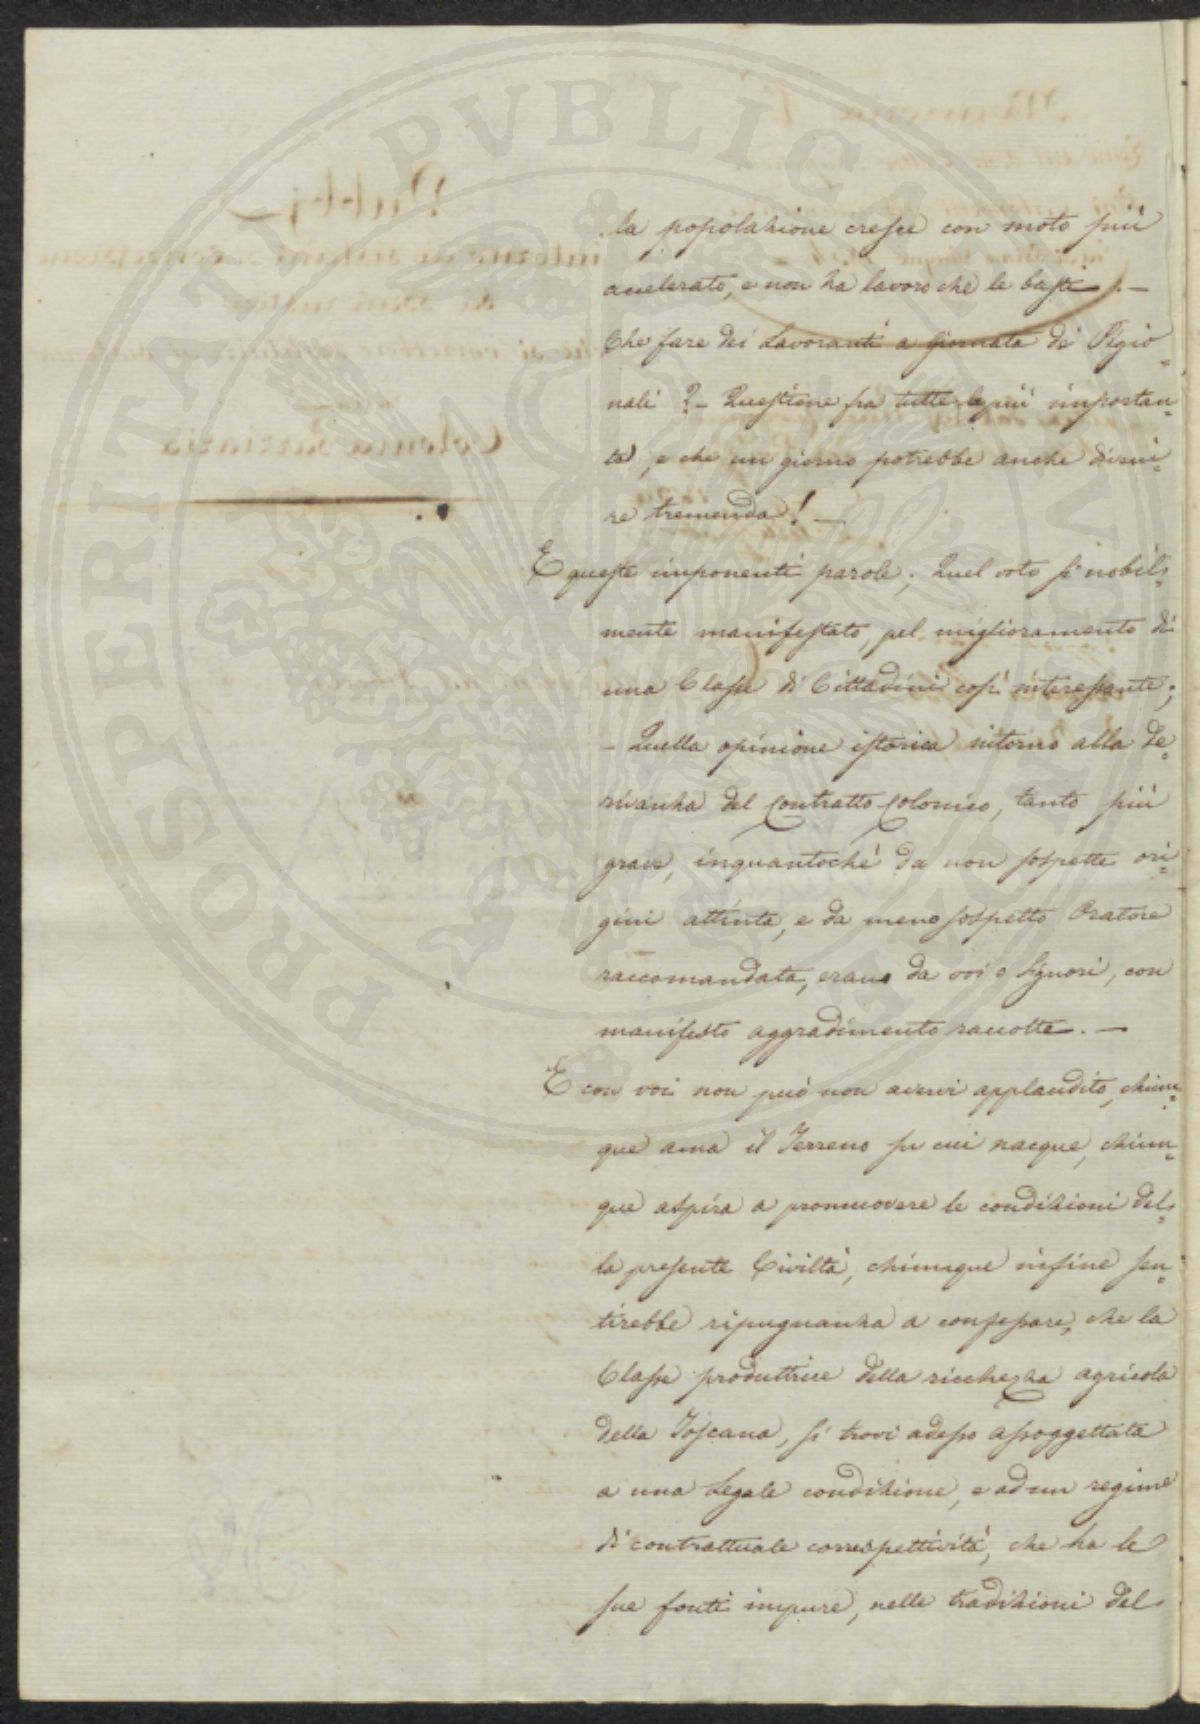 PROSPERITATI PVBLICAE
la popolazione cresce con moto più
accelerato, e non ha lavoro che le basti. —
Che fare dei Lavoranti a giornata dei Pigio-
nali? — Questione fra tutte le più importan-
te, e che un giorno potrebbe anche diveni-
re tremenda! —
E queste imponenti parole; Quel voto sì nobil-
mente manifestato, pel miglioramento di
una Classe di Cittadini così interessante;
— Quella opinione istorica intorno alla de-
rivanza del Contratto Colonico, tanto più
grave, inquantochè da non sospette ori-
gini attinta, e da meno sospetto Oratore
raccomandata, erano da voi o Signori, con
manifesto aggradimento raccolte. —
E con voi non può non avervi applaudito, chiun-
que ama il Terreno su cui nacque, chiun-
que aspira a promuovere le condizioni del-
la presente Civiltà, chiunque infine sen-
tirebbe ripugnanza a confessare, che la
Classe produttrice della ricchezza agricola
della Toscana, si trovi adesso assoggettata
a una Legale condizione, e ad un regime
di contrattuale correspettività, che ha le
sue fonti impure, nelle tradizioni del-